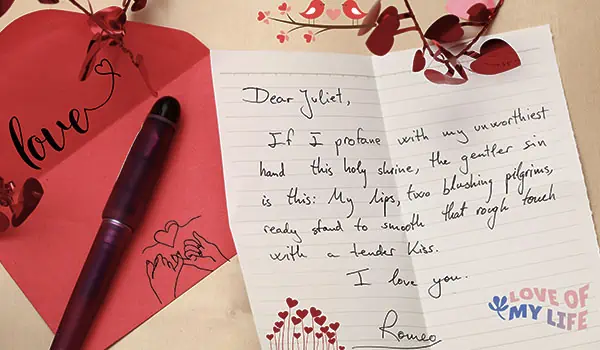 love
Dear Juliet,
If I profane with my unworthiest
hand this holy shrine, the gentler sin
is this: My lips, two blushing pilgrims,
ready stand to smooth that rough touch
with a tender kiss.
I love you.
Romeo
LOVE OF
MY LIFE